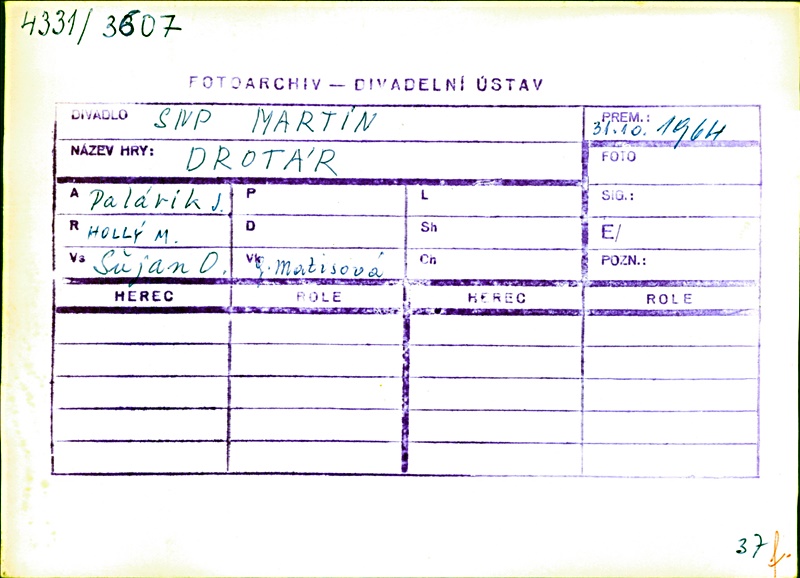 4331/3607
FOTOARCHIV — DIVADELNÍ ÚSTAV
DIVADLO SNP MARTIN
PREM.: 31.10. 1964
NÁZEV HRY: DROTÁR
FOTO
A Palárik J. P L SIG.:
R HOLLÝ M. D Sh E/
Vs Šujan O. Vk g. Matisová Ch POZN.:
HEREC ROLE HEREC ROLE
37